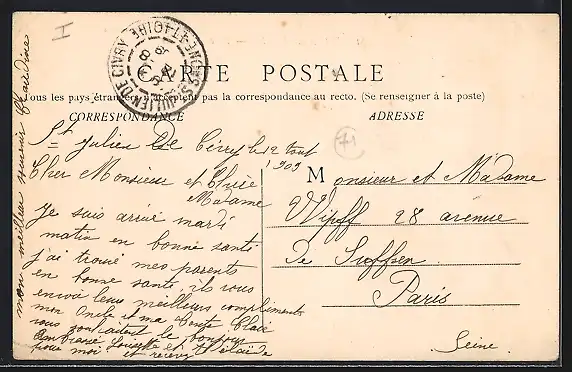 CARTE POSTALE
Tous les pays étrangers n'acceptent pas la correspondance au recto. (Se renseigner à la poste)
CORRESPONDANCE
ADRESSE
I
71
ST JULIEN-DE-CIVRY SAONE-ET-LOIRE
St Julien De Civry le 12 tout
1909
Cher Monsieur et Chère
Madame
Je suis arrivé mardi
matin en bonne santé
j'ai trouvé mes parents
en bonne santé, ils vous
envoi leur meilleurs compliments
mon Oncle et ma Tente
vous souhaitent le bonjour
Embrassé
pour moi et recevez
mon meilleur souvenir Claudine
Monsieur et Madame
Wipff 28 avenue
De Suffren
Paris
Seine.